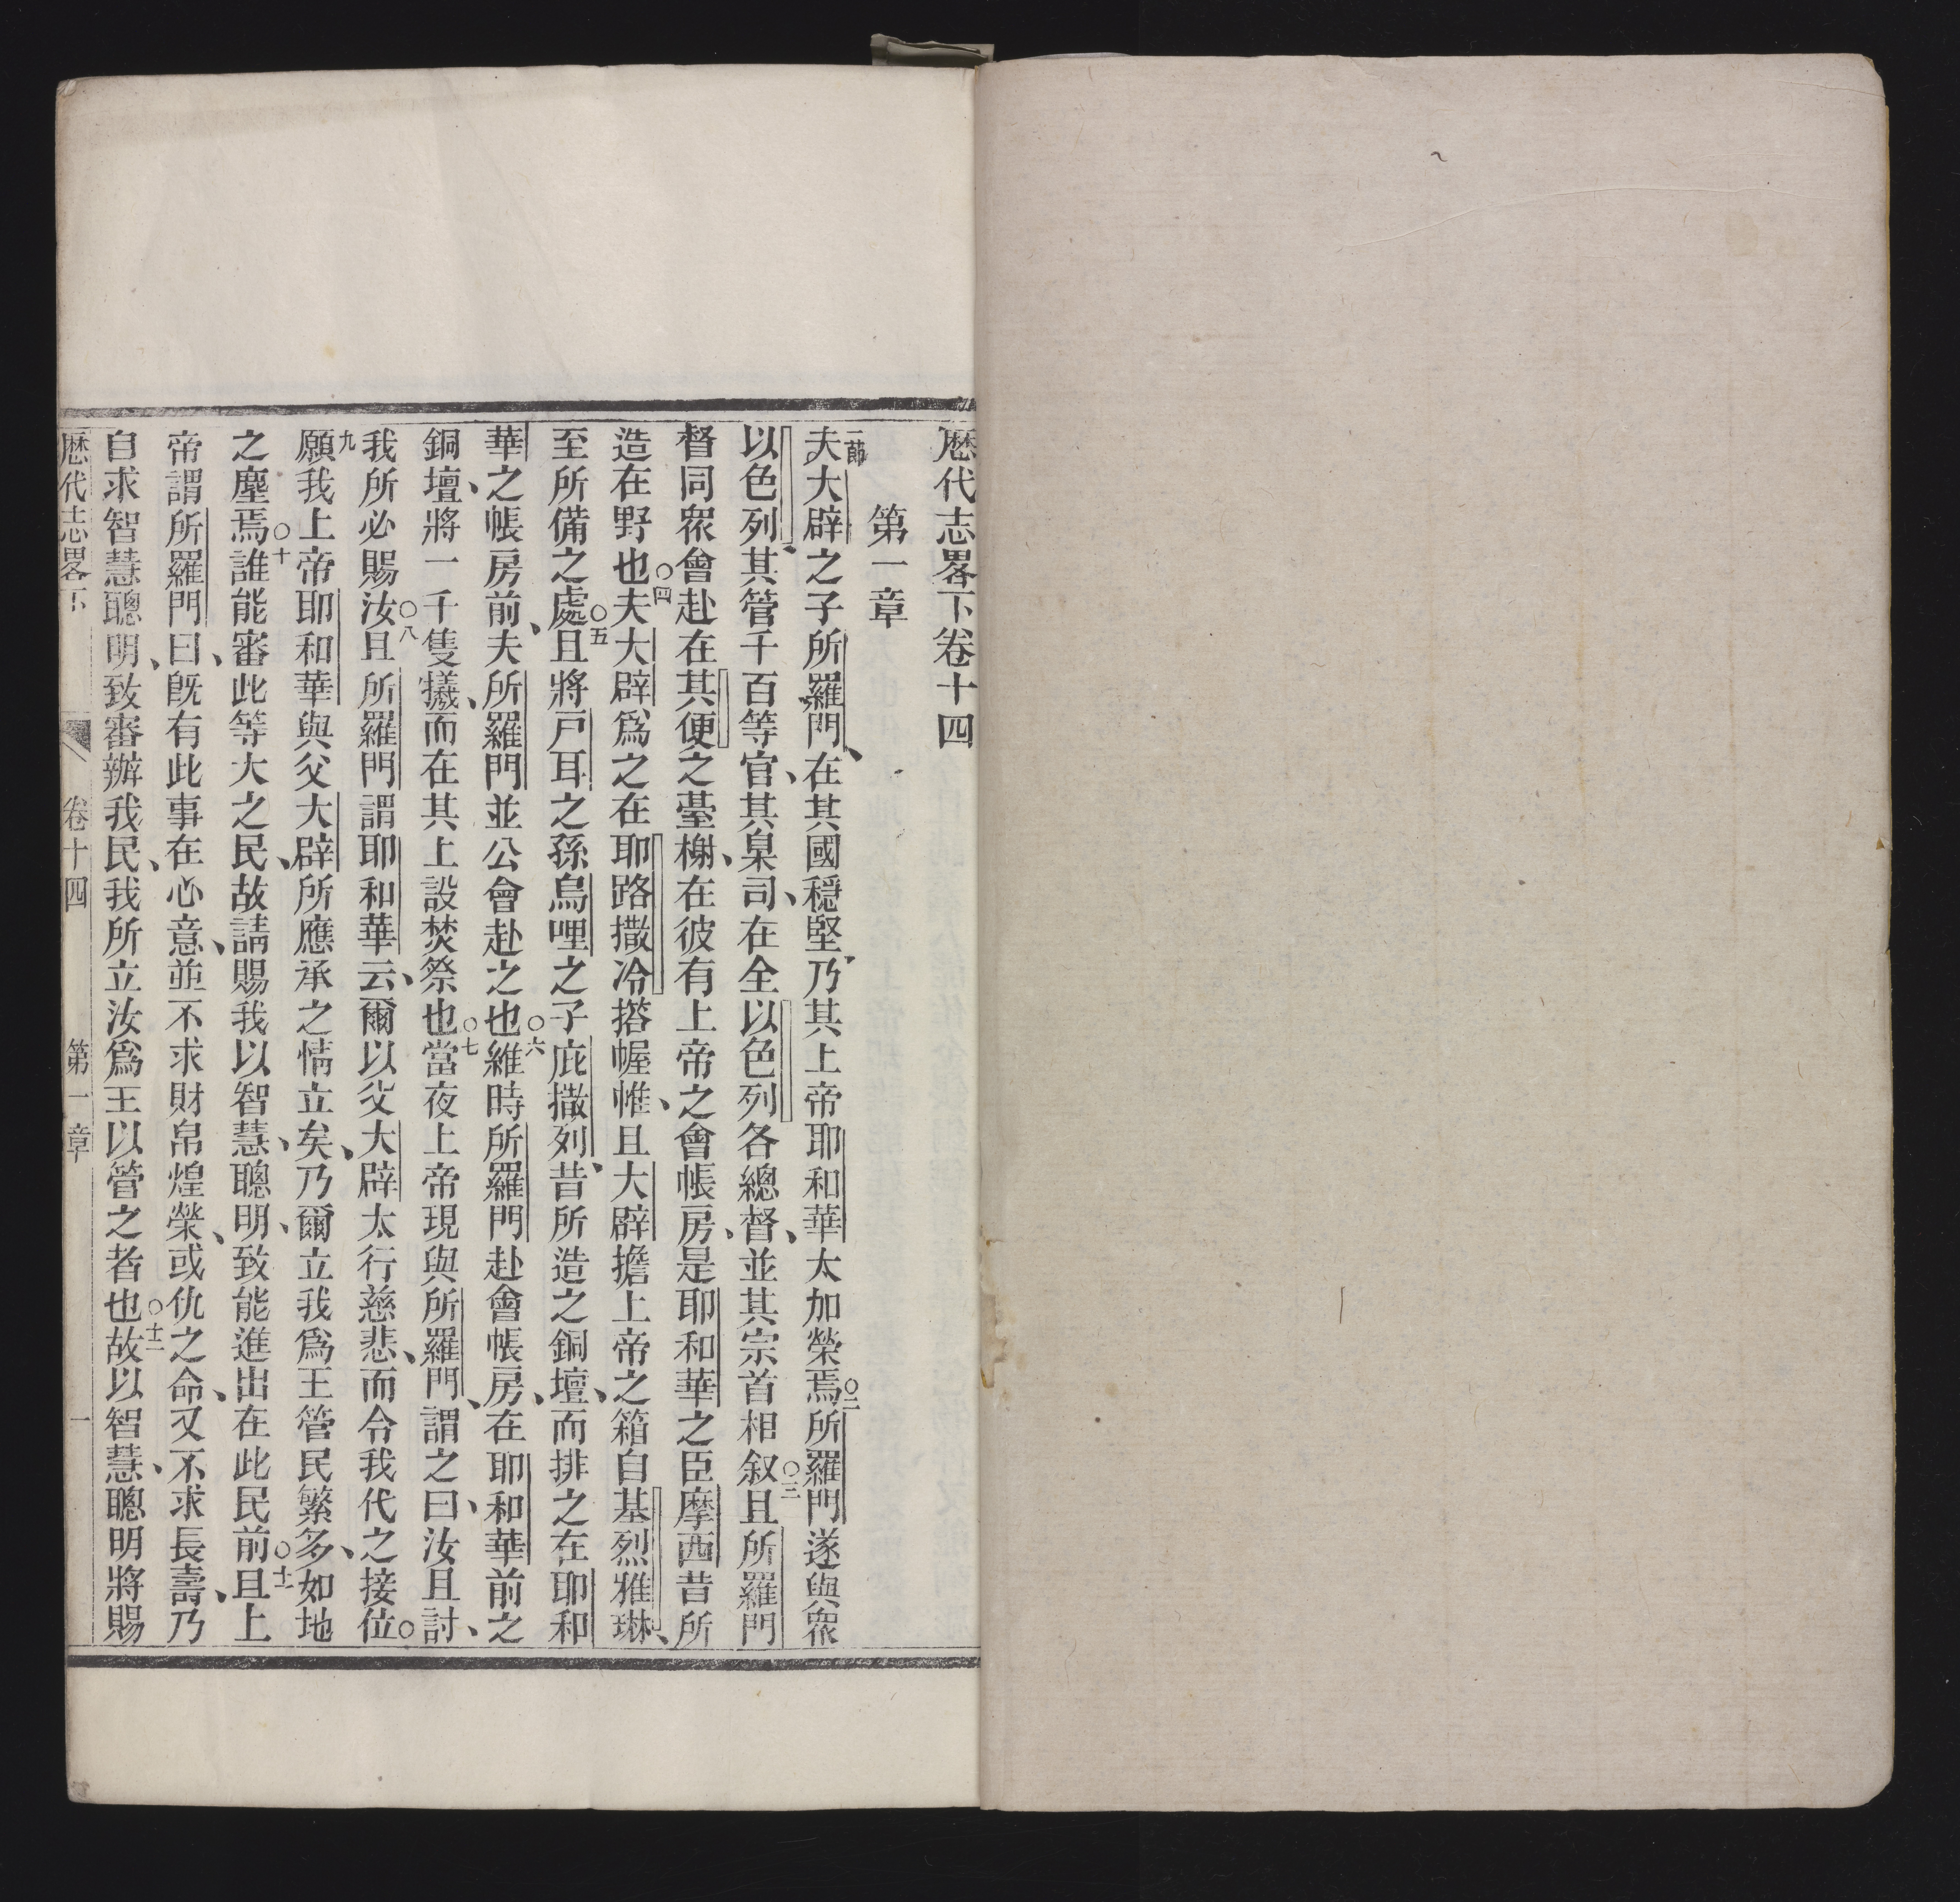 厯代志畧下卷十四
第一章
一節夫大辟之子所羅門、在其國穩堅、乃其上帝耶和華太加榮焉○二所羅門遂與衆
以色列、其管千百等官、其臬司、在全以色列各總督、並其宗首相叙○三且所羅門
督同衆會赴在其便之臺榭、在彼有上帝之會帳房、是耶和華之臣摩西昔所
造在野也○四夫大辟爲之在耶路撒冷搭幄帷、且大辟擔上帝之箱自基烈雅琳、
至所備之處○五且將戸耳之孫烏哩之子庇撒列、昔所造之銅壇、而排之在耶和
華之帳房前、夫所羅門並公會赴之也○六維時所羅門赴會帳房、在耶和華前之
銅壇、將一千隻犧、而在其上設焚祭也○七當夜上帝現與所羅門、謂之曰、汝且討、
我所必賜汝○八且所羅門謂耶和華云、爾以父大辟太行慈悲、而令我代之接位○
九願我上帝耶和華與父大辟所應承之情立矣、乃爾立我爲王管民繁多、如地
之塵焉○十誰能審此等大之民、故請賜我以智慧、聰明、致能進出在此民前○十一且上
帝謂所羅門曰、旣有此事在心意、並不求財帛煌榮、或仇之命、又不求長壽、乃
自求智慧聰明、致審辦我民、我所立汝爲王以管之者也○十二故以智慧、聰明將賜
厯代志畧下 卷十四 第一章 一